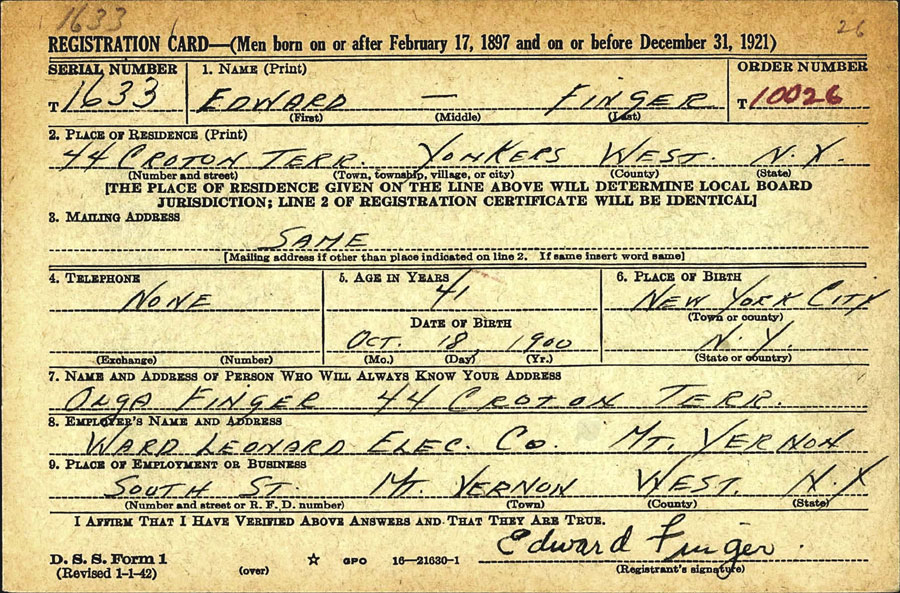 1633 26
REGISTRATION CARD—(Men born on or after February 17, 1897 and on or before December 31, 1921)
SERIAL NUMBER 1. NAME (Print) ORDER NUMBER
T 1633 EDWARD — FINGER T 10026
(First) (Middle) (Last)
2. PLACE OF RESIDENCE (Print)
44 CROTON TERR. YONKERS WEST. N.Y.
(Number and street) (Town, township, village, or city) (County) (State)
[THE PLACE OF RESIDENCE GIVEN ON THE LINE ABOVE WILL DETERMINE LOCAL BOARD
JURISDICTION; LINE 2 OF REGISTRATION CERTIFICATE WILL BE IDENTICAL]
3. MAILING ADDRESS
SAME
[Mailing address if other than place indicated on line 2. If same insert word same]
4. TELEPHONE 5. AGE IN YEARS 6. PLACE OF BIRTH
NONE 41 NEW YORK CITY
(Town or county)
DATE OF BIRTH
OCT. 18, 1900 N.Y.
(Exchange) (Number) (Mo.) (Day) (Yr.) (State or country)
7. NAME AND ADDRESS OF PERSON WHO WILL ALWAYS KNOW YOUR ADDRESS
OLGA FINGER 44 CROTON TERR.
8. EMPLOYER'S NAME AND ADDRESS
WARD LEONARD ELEC. CO. MT. VERNON
9. PLACE OF EMPLOYMENT OR BUSINESS
SOUTH ST. MT. VERNON WEST. N.Y
(Number and street or R. F. D. number) (Town) (County) (State)
I AFFIRM THAT I HAVE VERIFIED ABOVE ANSWERS AND THAT THEY ARE TRUE.
Edward Finger.
D. S. S. Form 1
(Revised 1-1-42) (over) ☆ GPO 16—21630-1 (Registrant's signature)